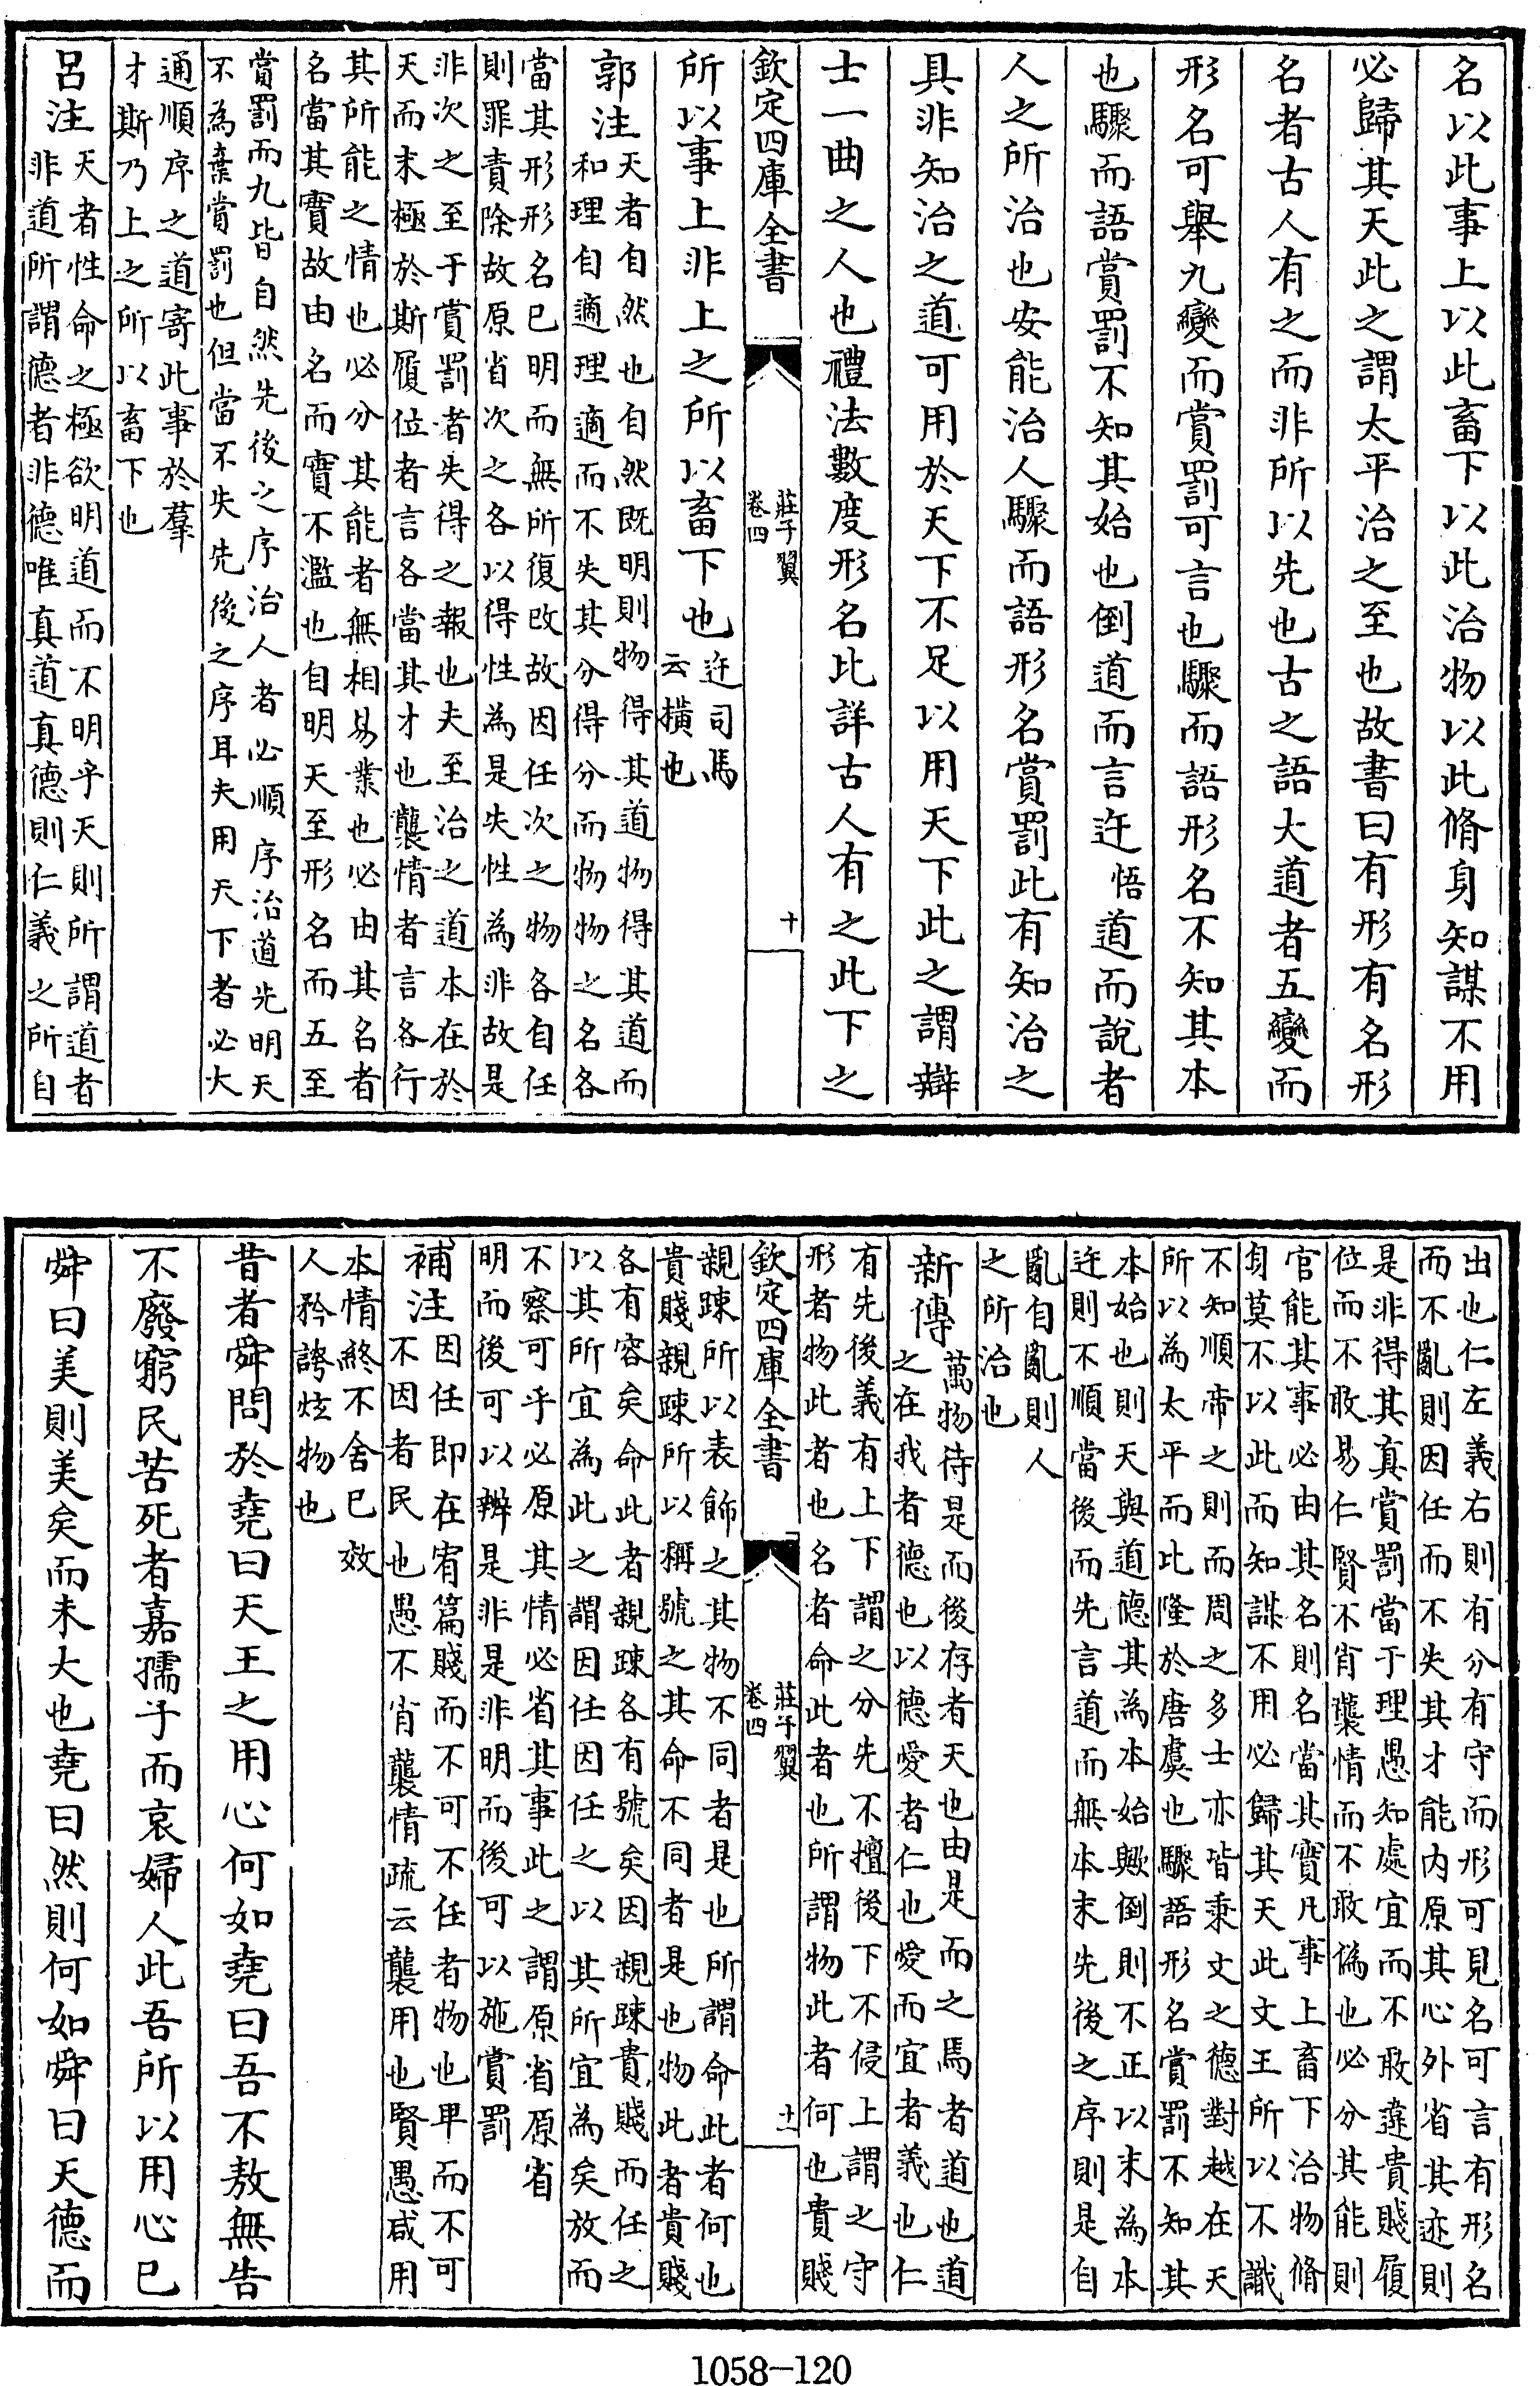 名以此事上以此畜下以此治物以此脩身知謀不用
必歸其天此之謂太平治之至也故書曰有形有名形
名者古人有之而非所以先也古之語大道者五變而
形名可舉九變而賞罰可言也驟而語形名不知其本
也驟而語賞罰不知其始也倒道而言迕悟道而說者
人之所治也安能治人驟而語形名賞罰此有知治之
具非知治之道可用於天下不足以用天下此之謂辯
士一曲之人也禮法數度形名比詳古人有之此下之
欽定四庫全書
莊子翼
卷四
十
所以事上非上之所以畜下也迕司馬
云橫也
郭注天者自然也自然既明則物得其道物得其道而
和理自適理適而不失其分得分而物物之名各
當其形形名已明而無所復改故因任次之物各自任
則罪責除故原省次之各以得性為是失性為非故是
非次之至于賞罰者失得之報也夫至治之道本在於
天而末極於斯履位者言各當其才也襲情者言各行
其所能之情也必分其能者無相易業也必由其名者
名當其實故由名而實不濫也自明天至形名而五至
賞罰而九皆自然先後之序治人者必順序治道先明天
不為棄賞罰也但當不失先後之序耳夫用天下者必大
通順序之道寄此事於羣
才斯乃上之所以畜下也
呂注天者性命之極欲明道而不明乎天則所謂道者
非道所謂德者非德唯真道真德則仁義之所自
出也仁左義右則有分有守而形可見名可言有形名
而不亂則因任而不失其才能內原其心外省其迹則
是非得其真賞罰當于理愚知處宜而不敢違貴賤履
位而不敢易仁賢不肖襲情而不敢偽也必分其能則
官能其事必由其名則名當其實凡事上畜下治物脩
身莫不以此而知謀不用必歸其天此文王所以不識
不知順帝之則而周之多士亦皆秉文之德對越在天
所以為太平而比隆於唐虞也驟語形名賞罰不知其
本始也則天與道德其為本始歟倒則不正以末為本
迕則不順當後而先言道而無本末先後之序則是自
亂自亂則人
之所治也
新傳萬物待是而後存者天也由是而之焉者道也道
之在我者德也以德愛者仁也愛而宜者義也仁
有先後義有上下謂之分先不擅後下不侵上謂之守
形者物此者也名者命此者也所謂物此者何也貴賤
欽定四庫全書
莊子翼
卷四
十一
親踈所以表飾之其物不同者是也所謂命此者何也
貴賤親踈所以稱號之其命不同者是也物此者貴賤
各有容矣命此者親踈各有號矣因親踈貴賤而任之
以其所宜為此之謂因任因任之以其所宜為矣放而
不察可乎必原其情必省其事此之謂原省原省
明而後可以辨是非是非明而後可以施賞罰
補注因任即在宥篇賤而不可不任者物也卑而不可
不因者民也愚不肖襲情疏云襲用也賢愚咸用
本情終不舍己效
人矜誇炫物也
昔者舜問於堯曰天王之用心何如堯曰吾不敖無告
不廢窮民苦死者嘉孺子而哀婦人此吾所以用心已
舜曰美則美矣而未大也堯曰然則何如舜曰天德而
1058-120